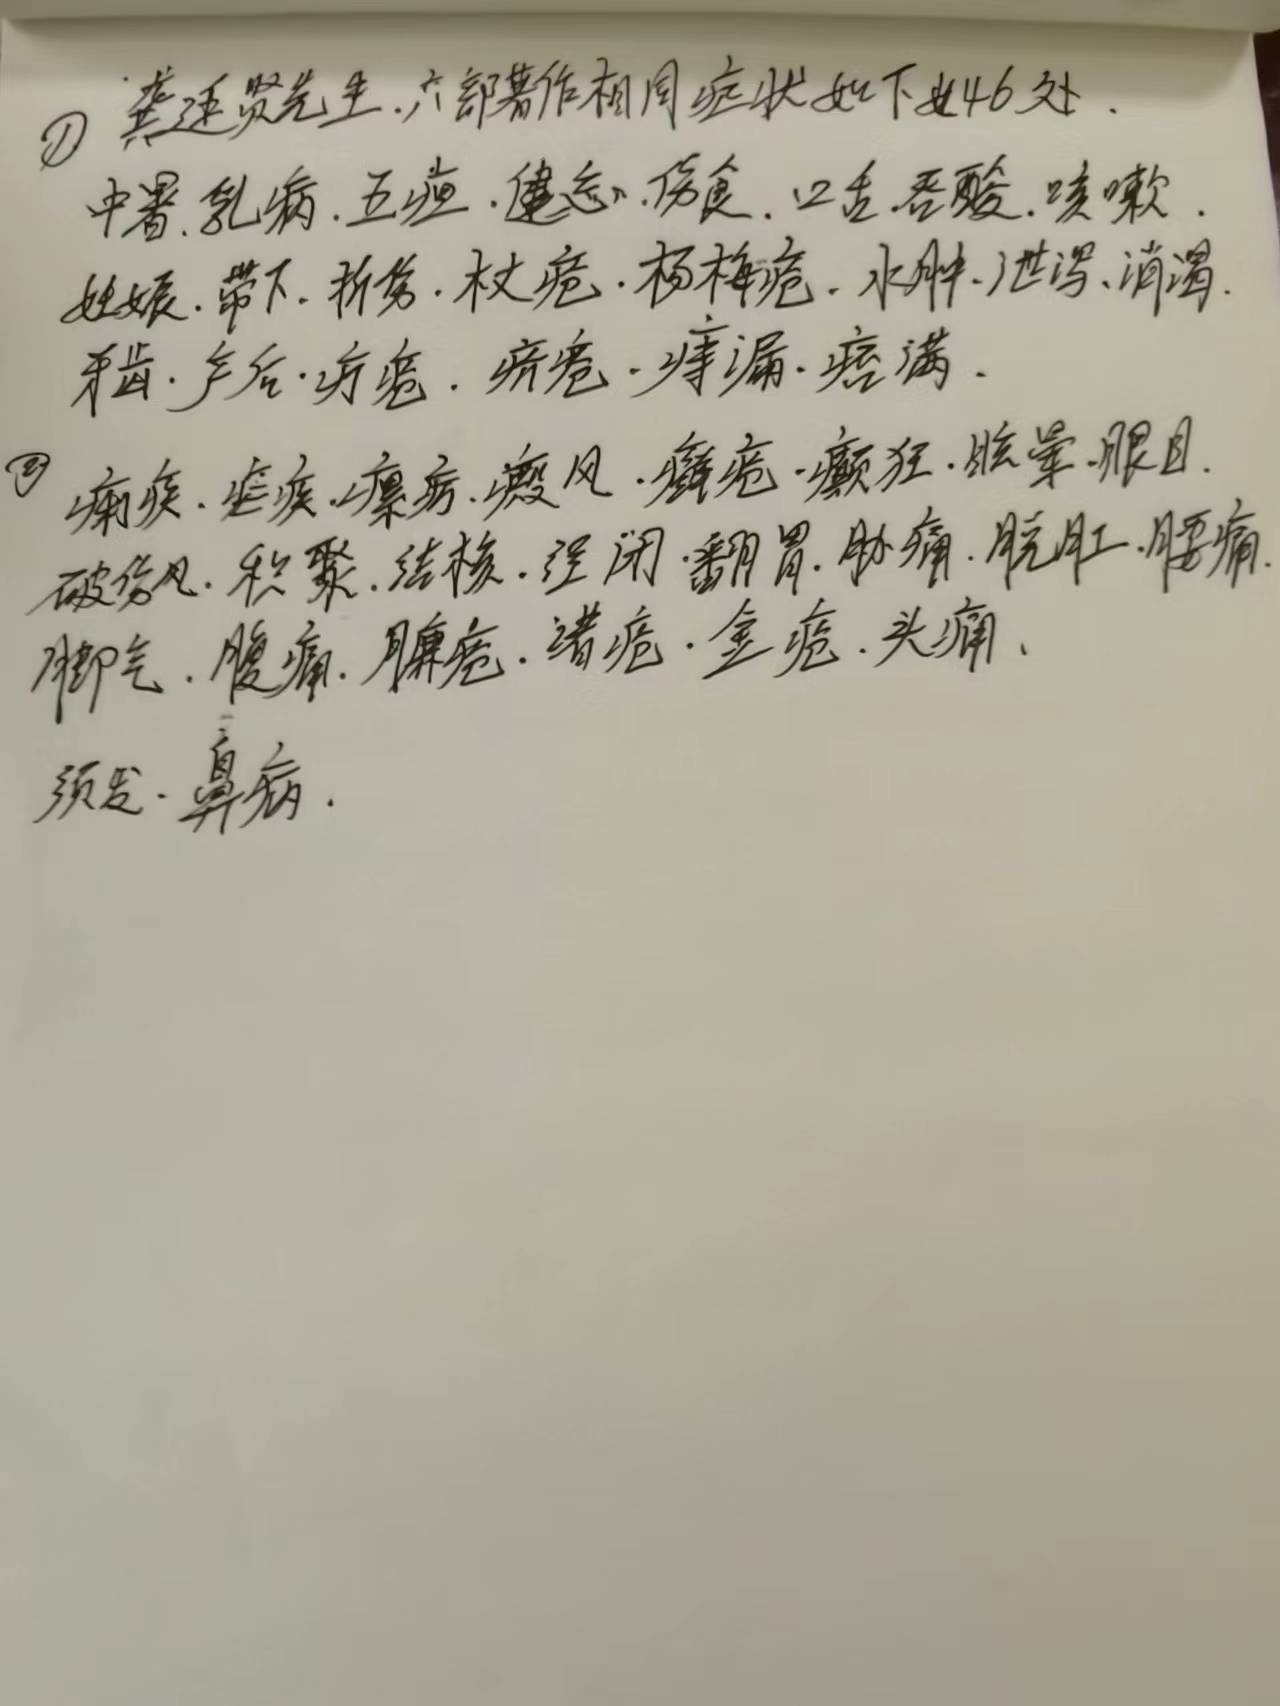 ① 龚廷贤先生.六部著作相同症状如下共46处.
中暑.乳病.五疸.健忘.伤食.口舌.吞酸.咳嗽.
妊娠.带下.折伤.杖疮.杨梅疮.水肿.泄泻.消渴.
牙齿.产后.疔疮.疥疮.痔漏.痞满.
② 痢疾.疟疾.瘰疬.癜风.癣疮.癫狂.眩晕.眼目.
破伤风.积聚.结核.淫闭.翻胃.胁痛.脱肛.腰痛.
脚气.腹痛.臁疮.诸疮.金疮.头痛、
须发.鼻病.